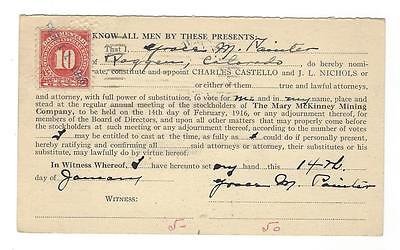 KNOW ALL MEN BY THESE PRESENTS:
That I, Grace M. Painter
of Roggen, Colorado, do hereby nomi-
nate, constitute and appoint CHARLES CASTELLO and J. L. NICHOLS or
or either of them true and lawful attorneys,
and attorney, with full power of substitution, to vote for me and in my name, place and
stead at the regular annual meeting of the stockholders of The Mary McKinney Mining
Company, to be held on the 14th day of February, 1916, or any adjournment thereof, for
members of the Board of Directors, and upon all other matters that may properly come before
the stockholders at such meeting or any adjournment thereof, according to the number of votes
I may be entitled to cast at the time, as fully as I could do if personally present,
hereby ratifying and confirming all said attorneys, or either of them, their substitutes or his
substitute, may lawfully do by virtue hereof.
In Witness Whereof, I have hereunto set my hand this 14-th
day of January Grace M. Painter
WITNESS:
5- 50
10